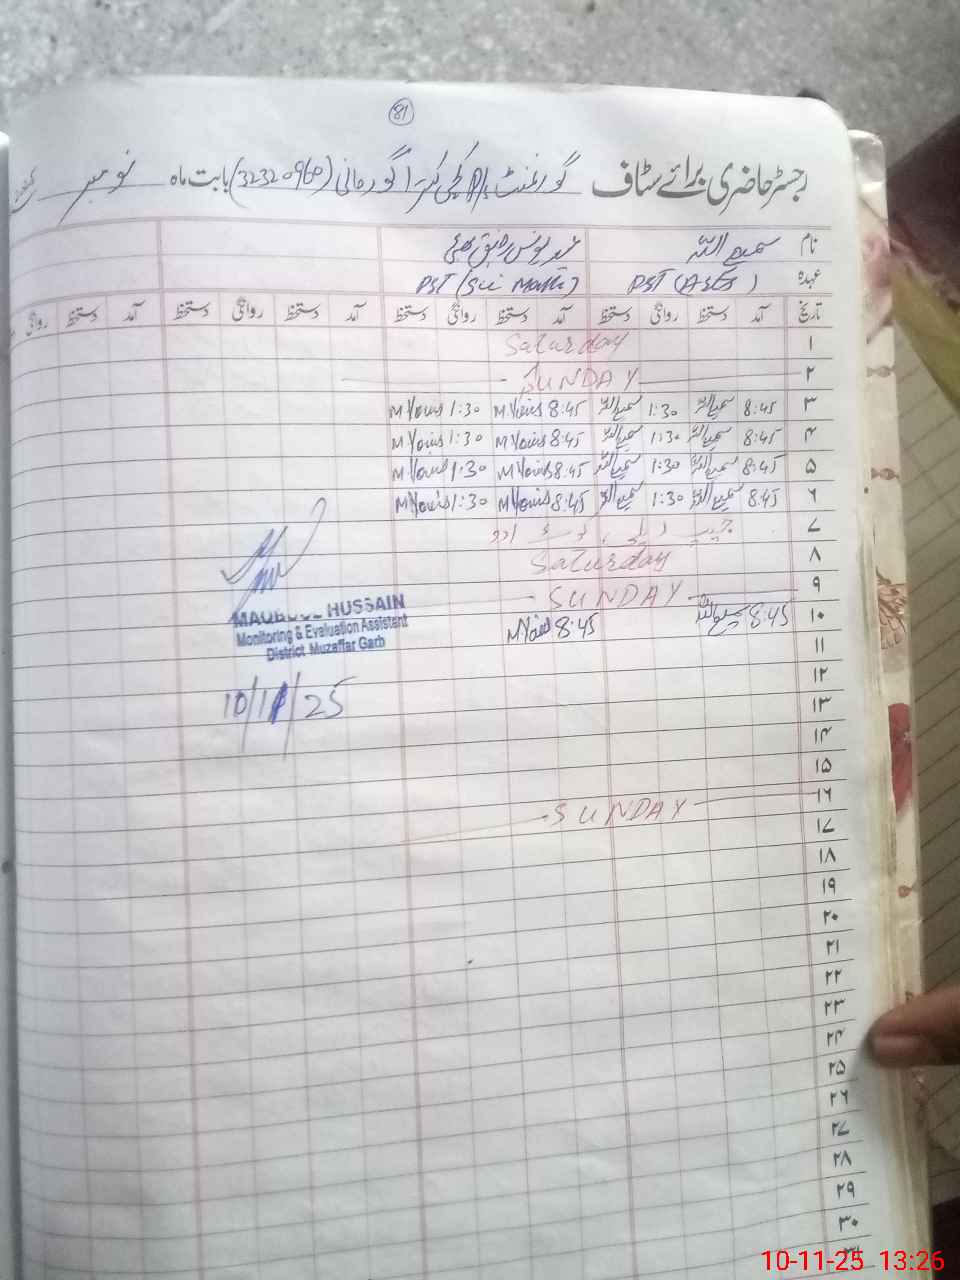 81
رجسٹر حاضری برائے سٹاف گورنمنٹ (32320960) بابت ماہ نومبر
نام سمیع اللہ
عہدہ PST (Arts) PST (Sci Math)
تاریخ آمد دستخط روانگی دستخط آمد دستخط روانگی دستخط آمد دستخط روانگی دستخط آمد دستخط روانگی
۱ Saturday
۲ SUNDAY
۳ 8:45 سمیع اللہ 1:30 سمیع اللہ 8:45 M Younis 1:30 M Younis
۴ 8:45 سمیع اللہ 1:30 سمیع اللہ 8:45 M Younis 1:30 M Younis
۵ 8:45 سمیع اللہ 1:30 سمیع اللہ 8:45 M Younis 1:30 M Younis
۶ 8:45 سمیع اللہ 1:30 سمیع اللہ 8:45 M Younis 1:30 M Younis
۷
۸ Saturday
۹ SUNDAY
۱۰ 8:45 سمیع اللہ 8:45 M Younis
HUSSAIN
Monitoring & Evaluation Assistant
District Muzaffar Garh
10/11/25
۱۱
۱۲
۱۳
۱۴
۱۵
۱۶ SUNDAY
۱۷
۱۸
۱۹
۲۰
۲۱
۲۲
۲۳
۲۴
۲۵
۲۶
۲۷
۲۸
۲۹
۳۰
۳۱
10-11-25 13:26